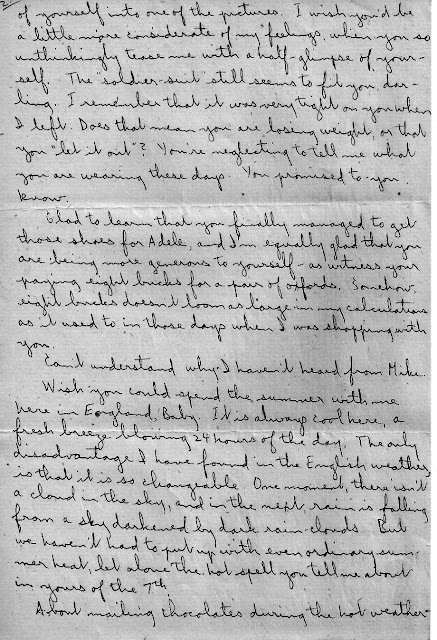 2/
of yourself into one of the pictures. I wish you'd be
a little more considerate of my feelings, when you so
unthinkingly tease me with a half-glimpse of your-
self. The "soldier-suit" still seems to fit you, dar-
ling. I remember that it was very tight on you when
I left. Does that mean you are losing weight, or that
you "let it out"? You're neglecting to tell me what
you are wearing these days. You promised to - you
know.
Glad to learn that you finally managed to get
those shoes for Adele, and I'm equally glad that you
are being more generous to yourself - as witness your
paying eight bucks for a pair of oxfords. Somehow,
eight bucks doesn't loom as large in my calculations
as it used to in those days when I was shopping with
you.
Can't understand why I haven't heard from Mike.
Wish you could spend the summer with me
here in England, Baby. It is always cool here, a
fresh breeze blowing 24 hours of the day. The only
disadvantage I have found in the English weather,
is that it is so changeable. One moment, there isn't
a cloud in the sky, and in the next, rain is falling
from a sky darkened by dark rain-clouds. But
we haven't had to put up with even ordinary sum-
mer heat, let alone the hot spell you tell me about
in yours of the 7th.
About mailing chocolates during the hot weather-